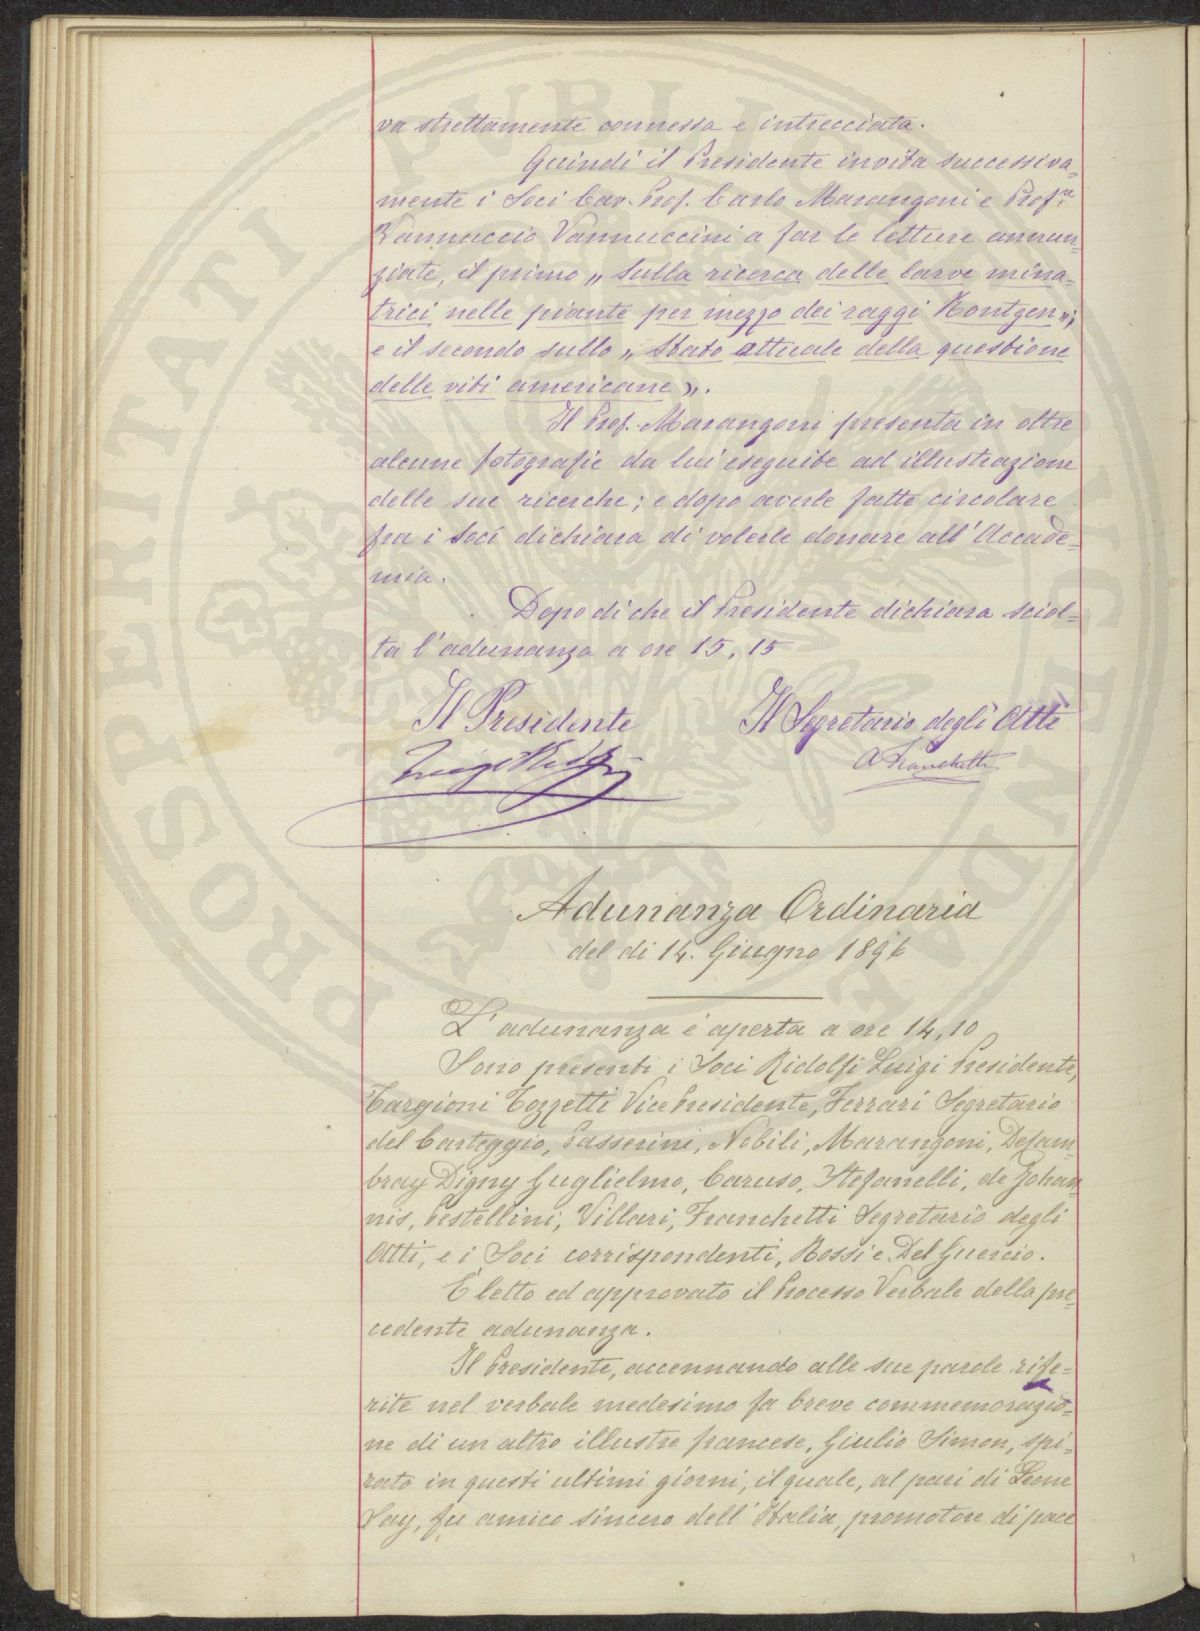 va strettamente connessa e intrecciata.
Quindi il Presidente invita successiva=
mente i Soci Cav. Prof. Carlo Marangoni e Prof.re
Vannuccio Vannuccini a far le letture annun=
ziate, il primo „ Sulla ricerca delle larve mina=
trici nelle piante per mezzo dei raggi Röntgen „;
e il secondo sullo „ Stato attuale della questione
delle viti americane „.
Il Prof. Marangoni presenta in oltre
alcune fotografie da lui eseguite ad illustrazione
delle sue ricerche; e dopo averle fatte circolare
fra i Soci dichiara di volerle donare all'Accade=
mia.
Dopo di che il Presidente dichiara sciol=
ta l'adunanza a ore 15, 15
Il Presidente Il Segretario degli Atti
Luigi Ridolfi A Franchetti
Adunanza Ordinaria
del di 14. Giugno 1896
L'adunanza è aperta a ore 14, 10
Sono presenti i Soci Ridolfi Luigi Presidente,
Targioni Tozzetti Vice Presidente, Ferrari Segretario
del Carteggio, Passerini, Nobili, Marangoni, DeCam=
bray Digny Guglielmo, Caruso, Stefanelli, de Johan=
nis, Pestellini, Villari, Franchetti Segretario degli
Atti, e i Soci corrispondenti, Rossi e Del Guercio.
È letto ed approvato il Processo Verbale della pre=
cedente adunanza.
Il Presidente, accennando alle sue parole rife=
rite nel verbale medesimo fa breve commemorazio=
ne di un altro illustre francese, Giulio Simon, spi=
rato in questi ultimi giorni, il quale, al pari di Leone
Say, fu amico sincero dell'Italia, promotore di pace
PROSPERITATI PUBLICAE AUGENDAE